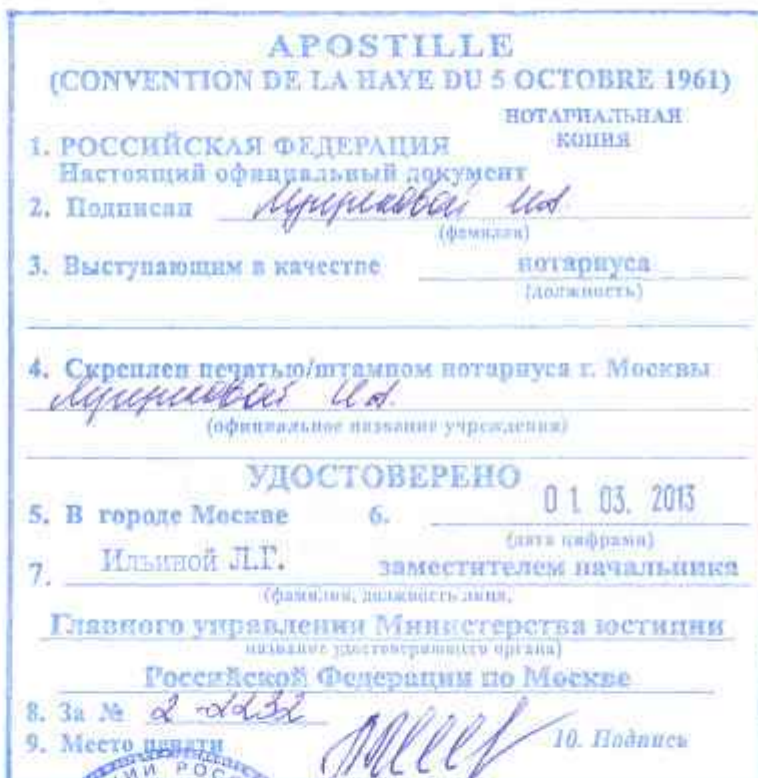 APOSTILLE
(CONVENTION DE LA HAYE DU 5 OCTOBRE 1961)
НОТАРИАЛЬНАЯ
КОПИЯ
1. РОССИЙСКАЯ ФЕДЕРАЦИЯ
Настоящий официальный документ
2. Подписан
(фамилия)
3. Выступающим в качестве нотариуса
(должность)
4. Скреплен печатью/штампом нотариуса г. Москвы
(официальное название учреждения)
УДОСТОВЕРЕНО
5. В городе Москве 6. 01. 03. 2013
(дата цифрами)
7. Ильиной Л.Г. заместителем начальника
(фамилия, должность лица,
Главного управления Министерства юстиции
название удостоверяющего органа)
Российской Федерации по Москве
8. За № 2-2232
9. Место печати 10. Подпись